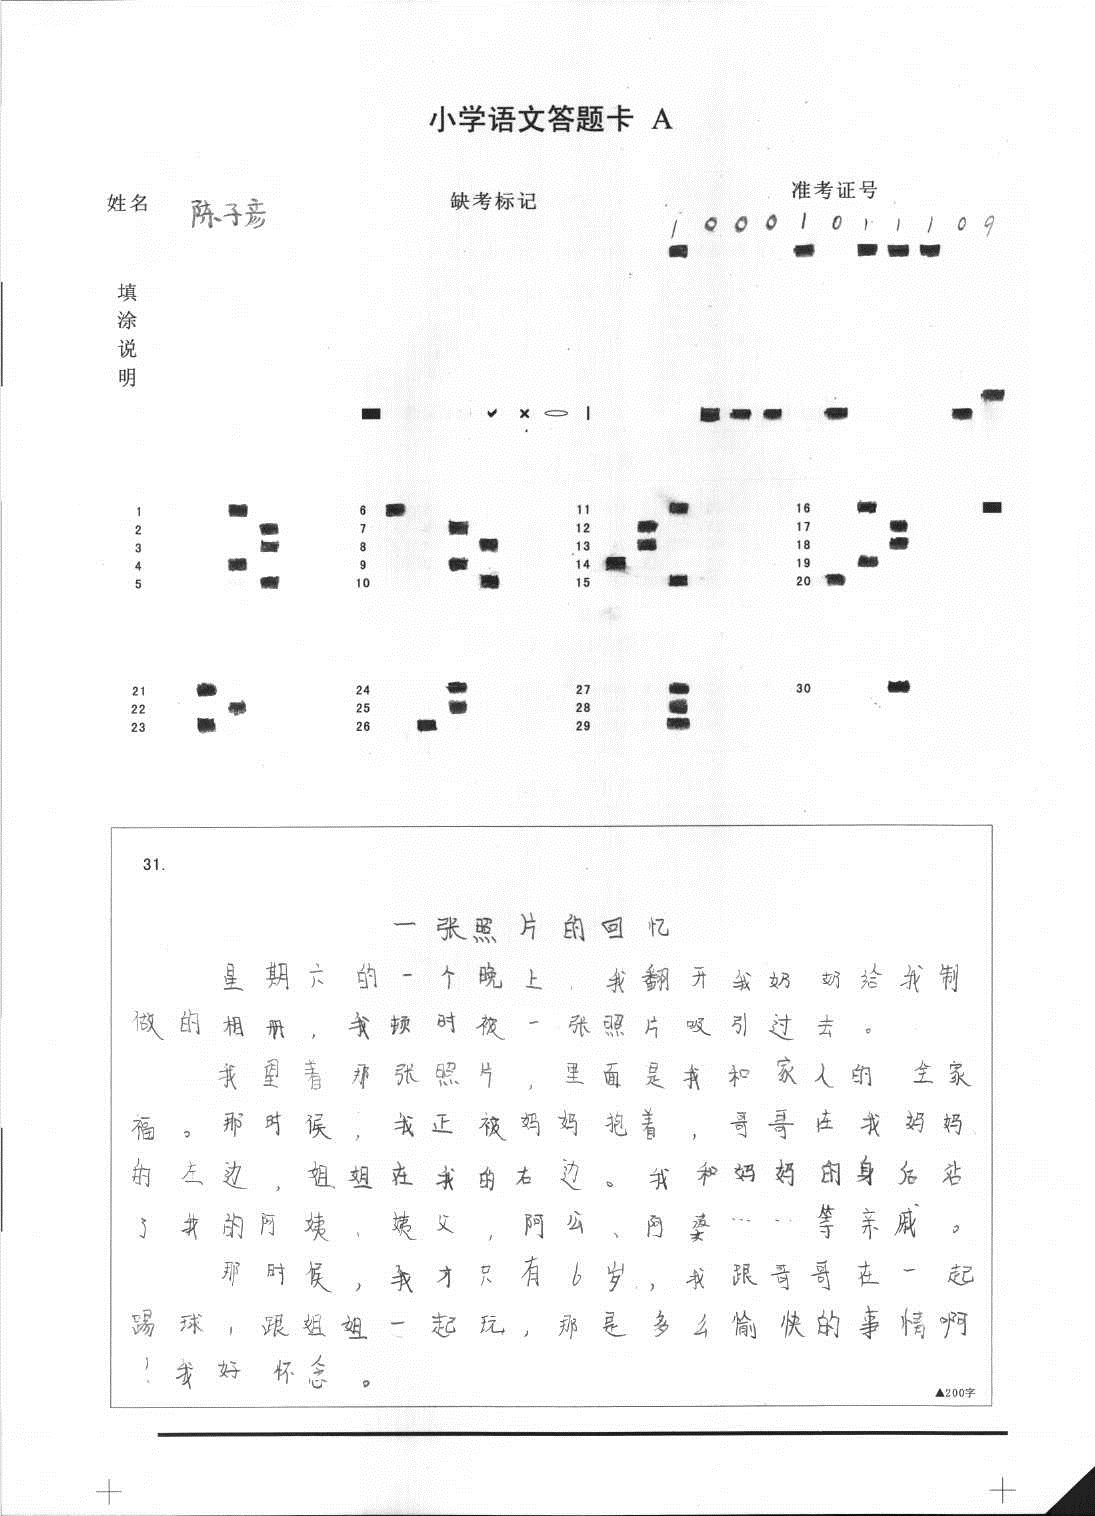 小学语文答题卡 A
姓名 陈子彦 缺考标记 准考证号
1 0 0 0 1 0 1 1 1 0 9
填涂说明
1 6 11 16
2 7 12 17
3 8 13 18
4 9 14 19
5 10 15 20
21 24 27 30
22 25 28
23 26 29
31.
一张照片的回忆
星期六的一个晚上，我翻开我奶奶给我制
做的相册，我顿时被一张照片吸引过去。
我望着那张照片，里面是我和家人的全家
福。那时候，我正被妈妈抱着，哥哥在我妈妈
的左边，姐姐在我的右边。我和妈妈的身后站
了我的阿姨、姨父，阿公、阿婆……等亲戚。
那时候，我才只有6岁，我跟哥哥在一起
踢球，跟姐姐一起玩，那是多么愉快的事情啊
！我好怀念。
▲200字